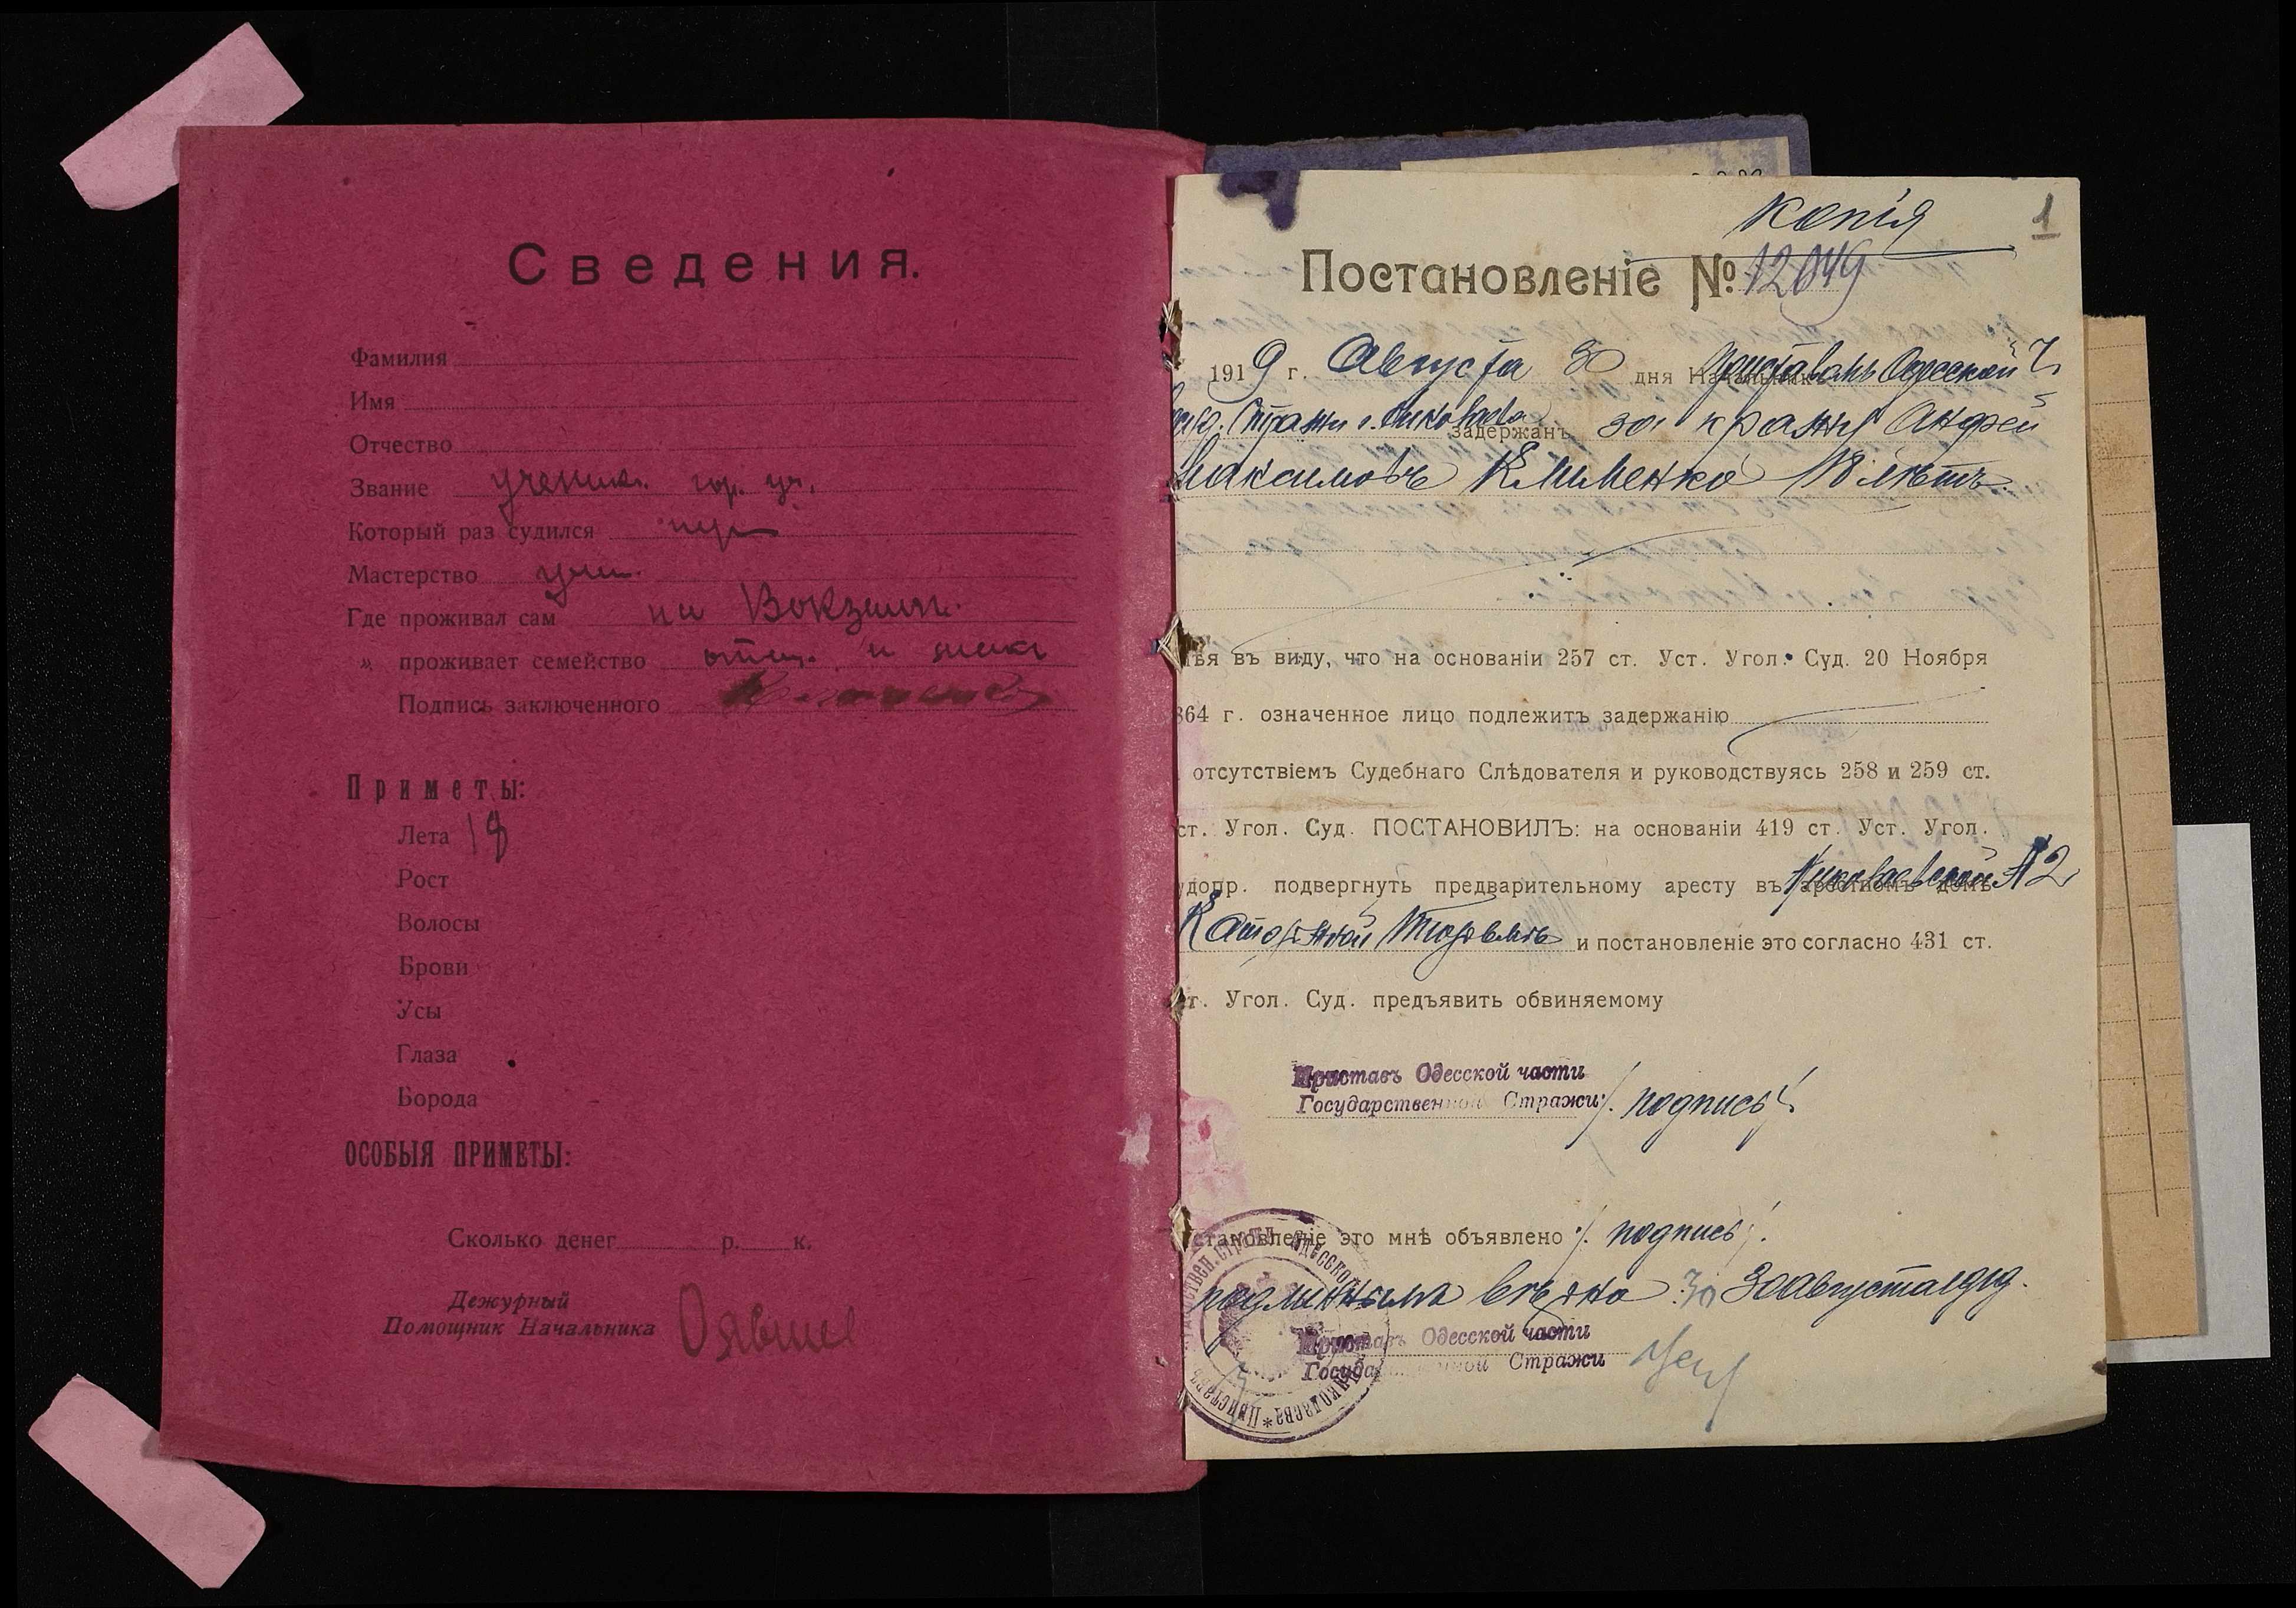 Сведения.
Фамилия
Имя
Отчество
Звание ученик. гор. уч.
Который раз судился пер
Мастерство учен.
Где проживал сам на Вокзале.
" проживает семейство отец. и
Подпись заключенного
Приметы:
Лета 18
Рост
Волосы
Брови
Усы
Глаза
Борода
ОСОБЫЯ ПРИМЕТЫ:
Сколько денег р. к.
Дежурный
Помощник Начальника
копія
1
Постановленіе № 12049
1919 г. Августа 30 дня Приставъ Одесской ч.
Стражи г. Николаева задержанъ за кражу Андрей
Максимовъ Клименко 18 лѣтъ.
ѣя въ виду, что на основаніи 257 ст. Уст. Угол. Суд. 20 Ноября
864 г. означенное лицо подлежитъ задержанію
отсутствіемъ Судебнаго Слѣдователя и руководствуясь 258 и 259 ст.
ст. Угол. Суд. ПОСТАНОВИЛЪ: на основаніи 419 ст. Уст. Угол.
удопр. подвергнуть предварительному аресту въ арестномъ домѣ Николаевской № 2
Каторжной Тюрьмѣ и постановленіе это согласно 431 ст.
т. Угол. Суд. предъявить обвиняемому
Приставъ Одесской части
Государственной Стражи /. подпись /.
становленіе это мнѣ объявлено /. подпись /.
подлиннымъ вѣрна 30 30 Августа 1919.
Приставъ Одесской части
Государственной Стражи